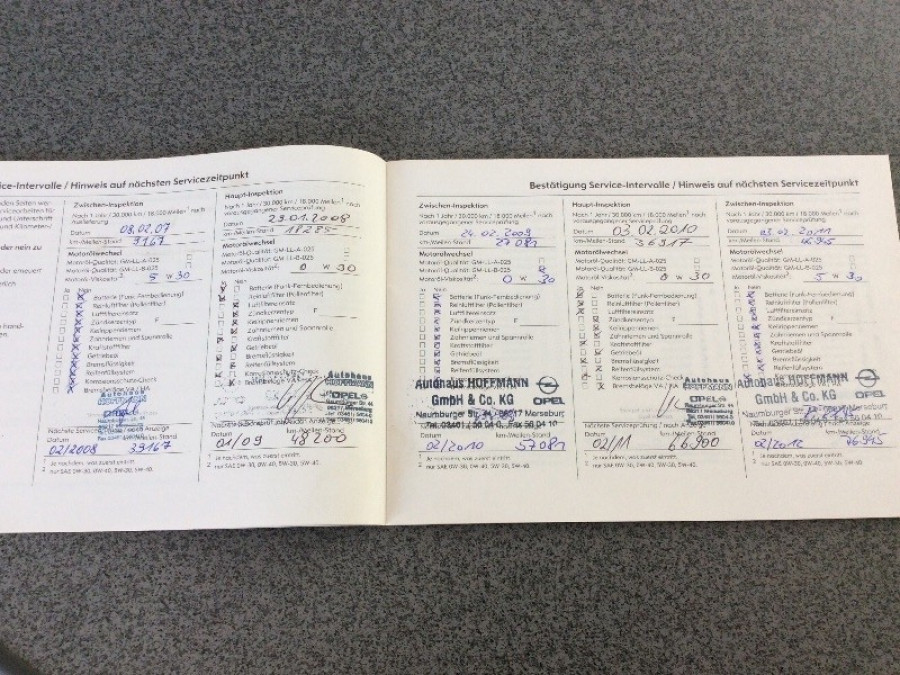 ice-Intervalle / Hinweis auf nächsten Servicezeitpunkt
Zwischen-Inspektion
Nach 1 Jahr / 30.000 km / 18.000 Meilen¹ nach
Datum 08.02.07
km-/Meilen-Stand 9167
Motorölwechsel
Motoröl-Qualität: GM-LL-A-025
Motoröl-Qualität: GM-LL-B-025
Motoröl-Viskosität²: 5 W 30
Ja Nein
Batterie (Funk-Fernbedienung)
Reinluftfilter (Pollenfilter)
Luftfiltereinsatz
Zündkerzentyp F
Keilrippenriemen
Zahnriemen und Spannrolle
Kraftstofffilter
Getriebeöl
Bremsflüssigkeit
Reifenfüllsystem
Korrosionsschutz-Check
Bremsbeläge VA / HA
Datum km-/Meilen-Stand
02/2008 39167
¹ Je nachdem, was zuerst eintritt.
² nur SAE 0W-30, 0W-40, 5W-30, 5W-40.
Haupt-Inspektion
Nach 1 Jahr / 30.000 km / 18.000 Meilen¹ nach
vorausgegangener Serviceprüfung
Datum 29.01.2008
km-/Meilen-Stand
Motorölwechsel
Motoröl-Qualität: GM-LL-A-025
Motoröl-Qualität: GM-LL-B-025
Motoröl-Viskosität²: 0 W 30
Ja Nein
Batterie (Funk-Fernbedienung)
Reinluftfilter (Pollenfilter)
Luftfiltereinsatz
Zündkerzentyp F
Keilrippenriemen
Zahnriemen und Spannrolle
Kraftstofffilter
Getriebeöl
Bremsflüssigkeit
Reifenfüllsystem
Korrosionsschutz-Check
Bremsbeläge VA / HA
Autohaus
HOFFMANN
OPEL
Datum km-/Meilen-Stand
01/09 48200
¹ Je nachdem, was zuerst eintritt.
² nur SAE 0W-30, 0W-40, 5W-30, 5W-40.
Bestätigung Service-Intervalle / Hinweis auf nächsten Servicezeitpunkt
Zwischen-Inspektion
Nach 1 Jahr / 30.000 km / 18.000 Meilen¹ nach
vorausgegangener Serviceprüfung.
Datum 24.02.2009
km-/Meilen-Stand 27081
Motorölwechsel
Motoröl-Qualität: GM-LL-A-025
Motoröl-Qualität: GM-LL-B-025
Motoröl-Viskosität²: 0 W 30
Ja Nein
Batterie (Funk-Fernbedienung)
Reinluftfilter (Pollenfilter)
Luftfiltereinsatz
Zündkerzentyp F
Keilrippenriemen
Zahnriemen und Spannrolle
Kraftstofffilter
Getriebeöl
Bremsflüssigkeit
Reifenfüllsystem
Autohaus HOFFMANN
GmbH & Co. KG OPEL
Naumburger Str. 44 · 06217 Merseburg
Tel. 03461 / 50 04 0, Fax 50 04 10
Datum km-/Meilen-Stand
02/2010 57081
¹ Je nachdem, was zuerst eintritt.
² nur SAE 0W-30, 0W-40, 5W-30, 5W-40.
Haupt-Inspektion
Nach 1 Jahr / 30.000 km / 18.000 Meilen¹ nach
vorausgegangener Serviceprüfung.
Datum 03.02.2010
km-/Meilen-Stand 36917
Motorölwechsel
Motoröl-Qualität: GM-LL-A-025
Motoröl-Qualität: GM-LL-B-025
Motoröl-Viskosität²: 0 W 30
Ja Nein
Batterie (Funk-Fernbedienung)
Reinluftfilter (Pollenfilter)
Luftfiltereinsatz
Zündkerzentyp F
Keilrippenriemen
Zahnriemen und Spannrolle
Kraftstofffilter
Getriebeöl
Bremsflüssigkeit
Reifenfüllsystem
Korrosionsschutz-Check
Bremsbeläge VA / HA
Autohaus
OPEL
Nächste Serviceprüfung / nach Anzeige
Datum km-/Meilen-Stand
02/11 66900
¹ Je nachdem, was zuerst eintritt.
² nur SAE 0W-30, 0W-40, 5W-30, 5W-40.
Zwischen-Inspektion
Nach 1 Jahr / 30.000 km / 18.000 Meilen¹ nach
vorausgegangener Serviceprüfung.
Datum 03.02.2011
km-/Meilen-Stand 46945
Motorölwechsel
Motoröl-Qualität: GM-LL-A-025
Motoröl-Qualität: GM-LL-B-025
Motoröl-Viskosität²: 5 W 30
Ja Nein
Batterie (Funk-Fernbedienung)
Reinluftfilter (Pollenfilter)
Luftfiltereinsatz
Zündkerzentyp F
Keilrippenriemen
Zahnriemen und Spannrolle
Kraftstofffilter
Getriebeöl
Bremsflüssigkeit
Reifenfüllsystem
Autohaus HOFFMANN
GmbH & Co. KG OPEL
Datum km-/Meilen-Stand
02/2012 76945
¹ Je nachdem, was zuerst eintritt.
² nur SAE 0W-30, 0W-40, 5W-30, 5W-40.